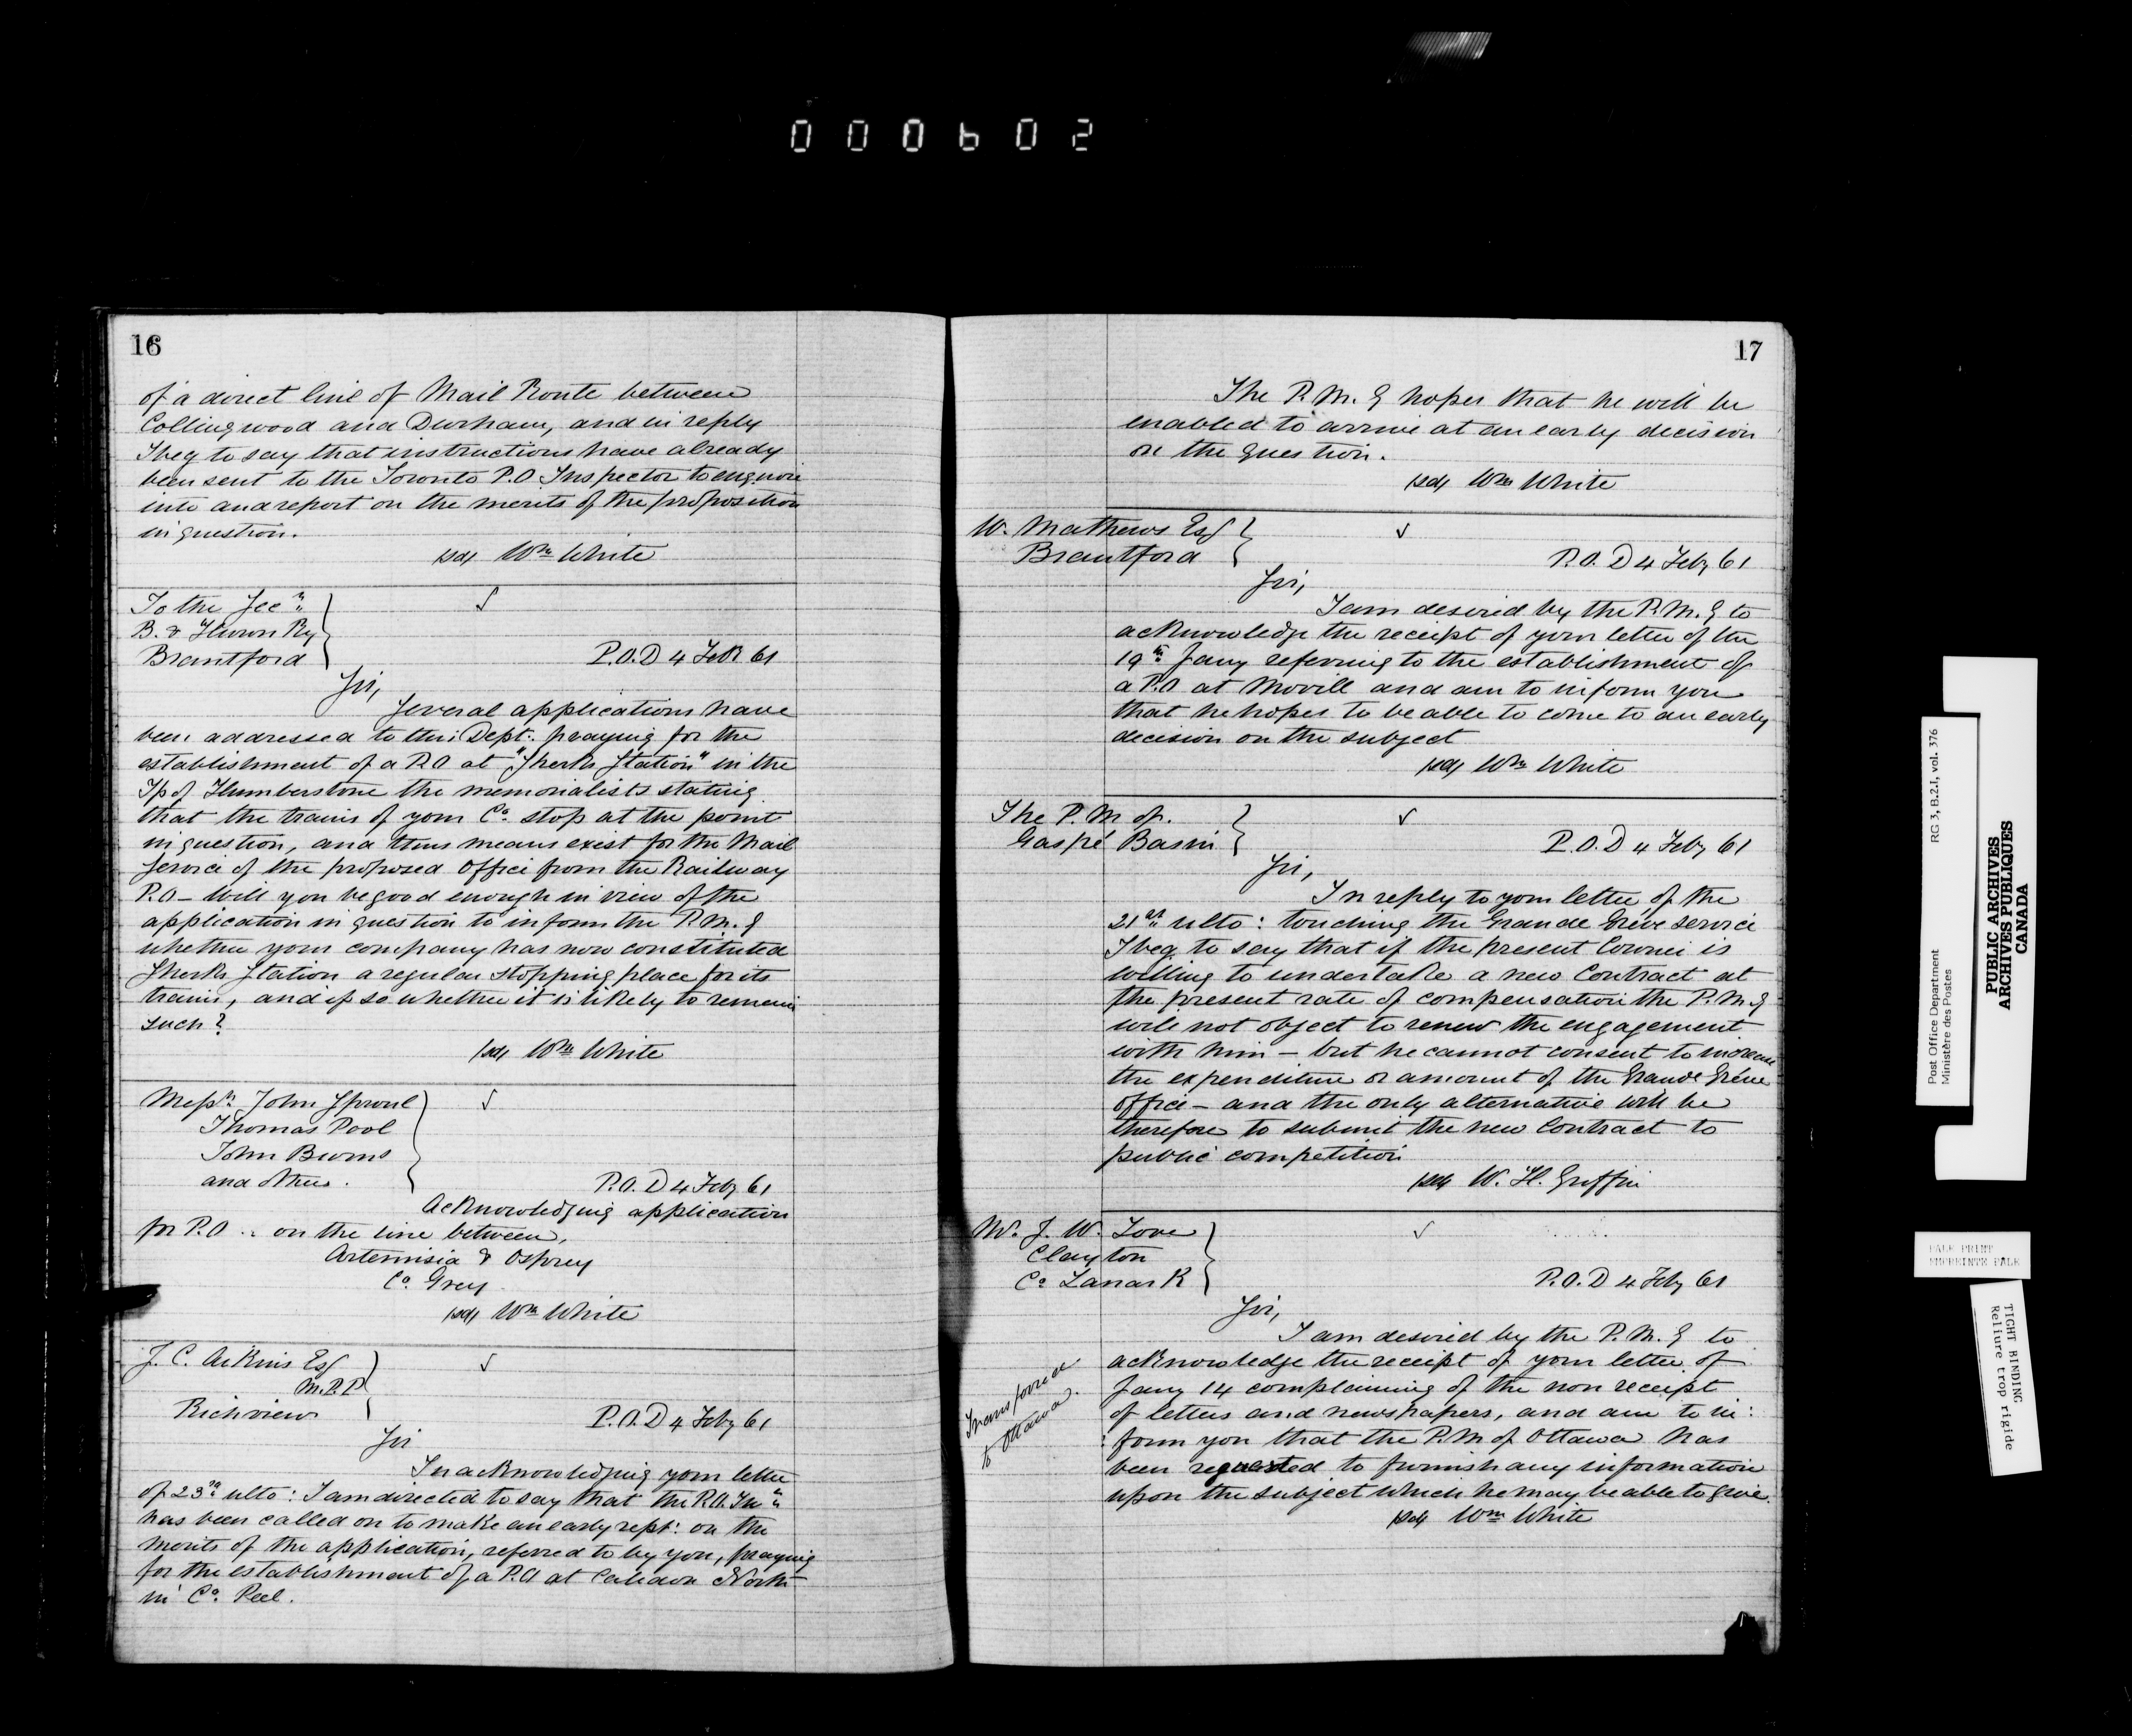 000602
16
of a direct line of Mail Route between
Collingwood and Durham, and in reply
I beg to say that instructions have already
been sent to the Toronto P.O Inspector to enquire
into and report on the merits of the proposition
in question.
sd/ Wm White
To the Secy
B. & Huron Ry
Brantford
√
P.O.D 4 Feb 61
Sir,
Several applications have
been addressed to this Dept. praying for the
establishment of a P.O at "Sherks Station" in the
Tp of Humberstone the memorialists stating
that the trains of your Co. stop at the point
in question, and thus means exist for the Mail
Service of the proposed Office from the Railway
P.O – Will you be good enough in view of the
application in question to inform the P.M.G
whether your company has now constituted
Sherks Station a regular stopping place for its
trains, and if so whether it is likely to remain
such?
sd/ Wm White
Messrs John Sproul
Thomas Pool
John Burns
and others.
√
P.O.D 4 Feby 61
Acknowledging application
for P.O .. on the line between,
Artemisia & Osprey
Co. Grey
sd/ Wm White
J. C. Aikins Esq
M.P.P
Richview
√
P.O.D 4 Feby 61
Sir
In acknowledging your letter
of 23rd ulto: I am directed to say that the P.O. Inr
has been called on to make an early rept: on the
merits of the application, referred to by you, praying
for the establishment of a P.O at Caledon North
in Co. Peel.
17
The P.M.G hopes that he will be
enabled to arrive at an early decision
on the question.
sd/ Wm White
W. Mathews Esq
Brantford
√
P.O.D 4 Feby 61
Sir,
I am desired by the P.M.G to
acknowledge the receipt of your letter of the
19th Jany referring to the establishment of
a P.O at Movill and am to inform you
that he hopes to be able to come to an early
decision on the subject
sd/ Wm White
The P.M of.
Gaspé Basin
√
P.O.D 4 Feby 61
Sir,
In reply to your letter of the
21st ulto: touching the Grande Grève service
I beg to say that if the present Courier is
willing to undertake a new Contract at
the present rate of compensation the P.M.G
will not object to renew the engagement
with him – but he cannot consent to increase
the expenditure on amount of the Grande Grève
Office – and the only alternative will be
therefore to submit the new Contract to
public competition
sd/ W. H. Griffin
Mr. J. W. Love
Clayton
Co Lanark
√
P.O.D 4 Feby 61
Sir,
I am desired by the P.M.G to
acknowledge the receipt of your letter of
Jany 14 complaining of the non receipt
of letters and newspapers, and am to in:
:form you that the P.M of Ottawa has
been requested to furnish any information
upon the subject which he may be able to give.
sd/ Wm White
Transferred
to Ottawa.
Post Office Department
Ministère des Postes
RG 3, B.2.I, vol. 376
PUBLIC ARCHIVES
ARCHIVES PUBLIQUES
CANADA
PALE PRINT
EMPREINTE PALE
TIGHT BINDING
Reliure trop rigide